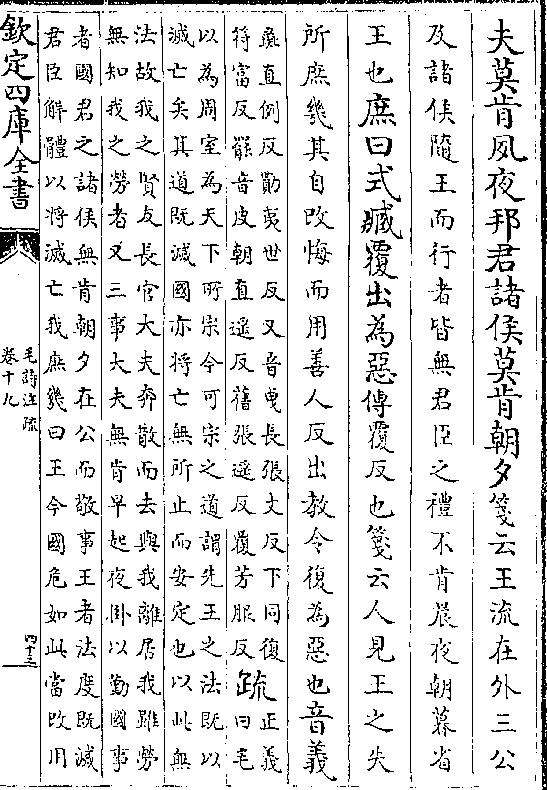 夫莫肯夙夜邦君諸侯莫肯朝夕箋云王流在外三公
及諸侯隨王而行者皆無君臣之禮不肯晨夜朝暮省
王也庶曰式臧覆出為惡傳覆反也箋云人見王之失
所庶幾其自改悔而用善人反出教令復為惡也音義
彘直例反勩夷世反又音曵長張丈反下同復
符富反罷音皮朝直遥反舊張遥反覆芳服反疏正義
曰毛
以為周室為天下所宗今可宗之道謂先王之法既以
滅亡矣其道既滅國亦將亡無所止而安定也以此無
法故我之賢友長官大夫奔散而去與我離居我雖勞
無知我之勞者又三事大夫無肯早起夜卧以勤國事
者國君之諸侯無肯朝夕在公而敬事王者法度既滅
君臣解體以將滅亡我庶幾曰王今國危如此當改用
欽定四庫全書
毛詩注疏
卷十九
四十三